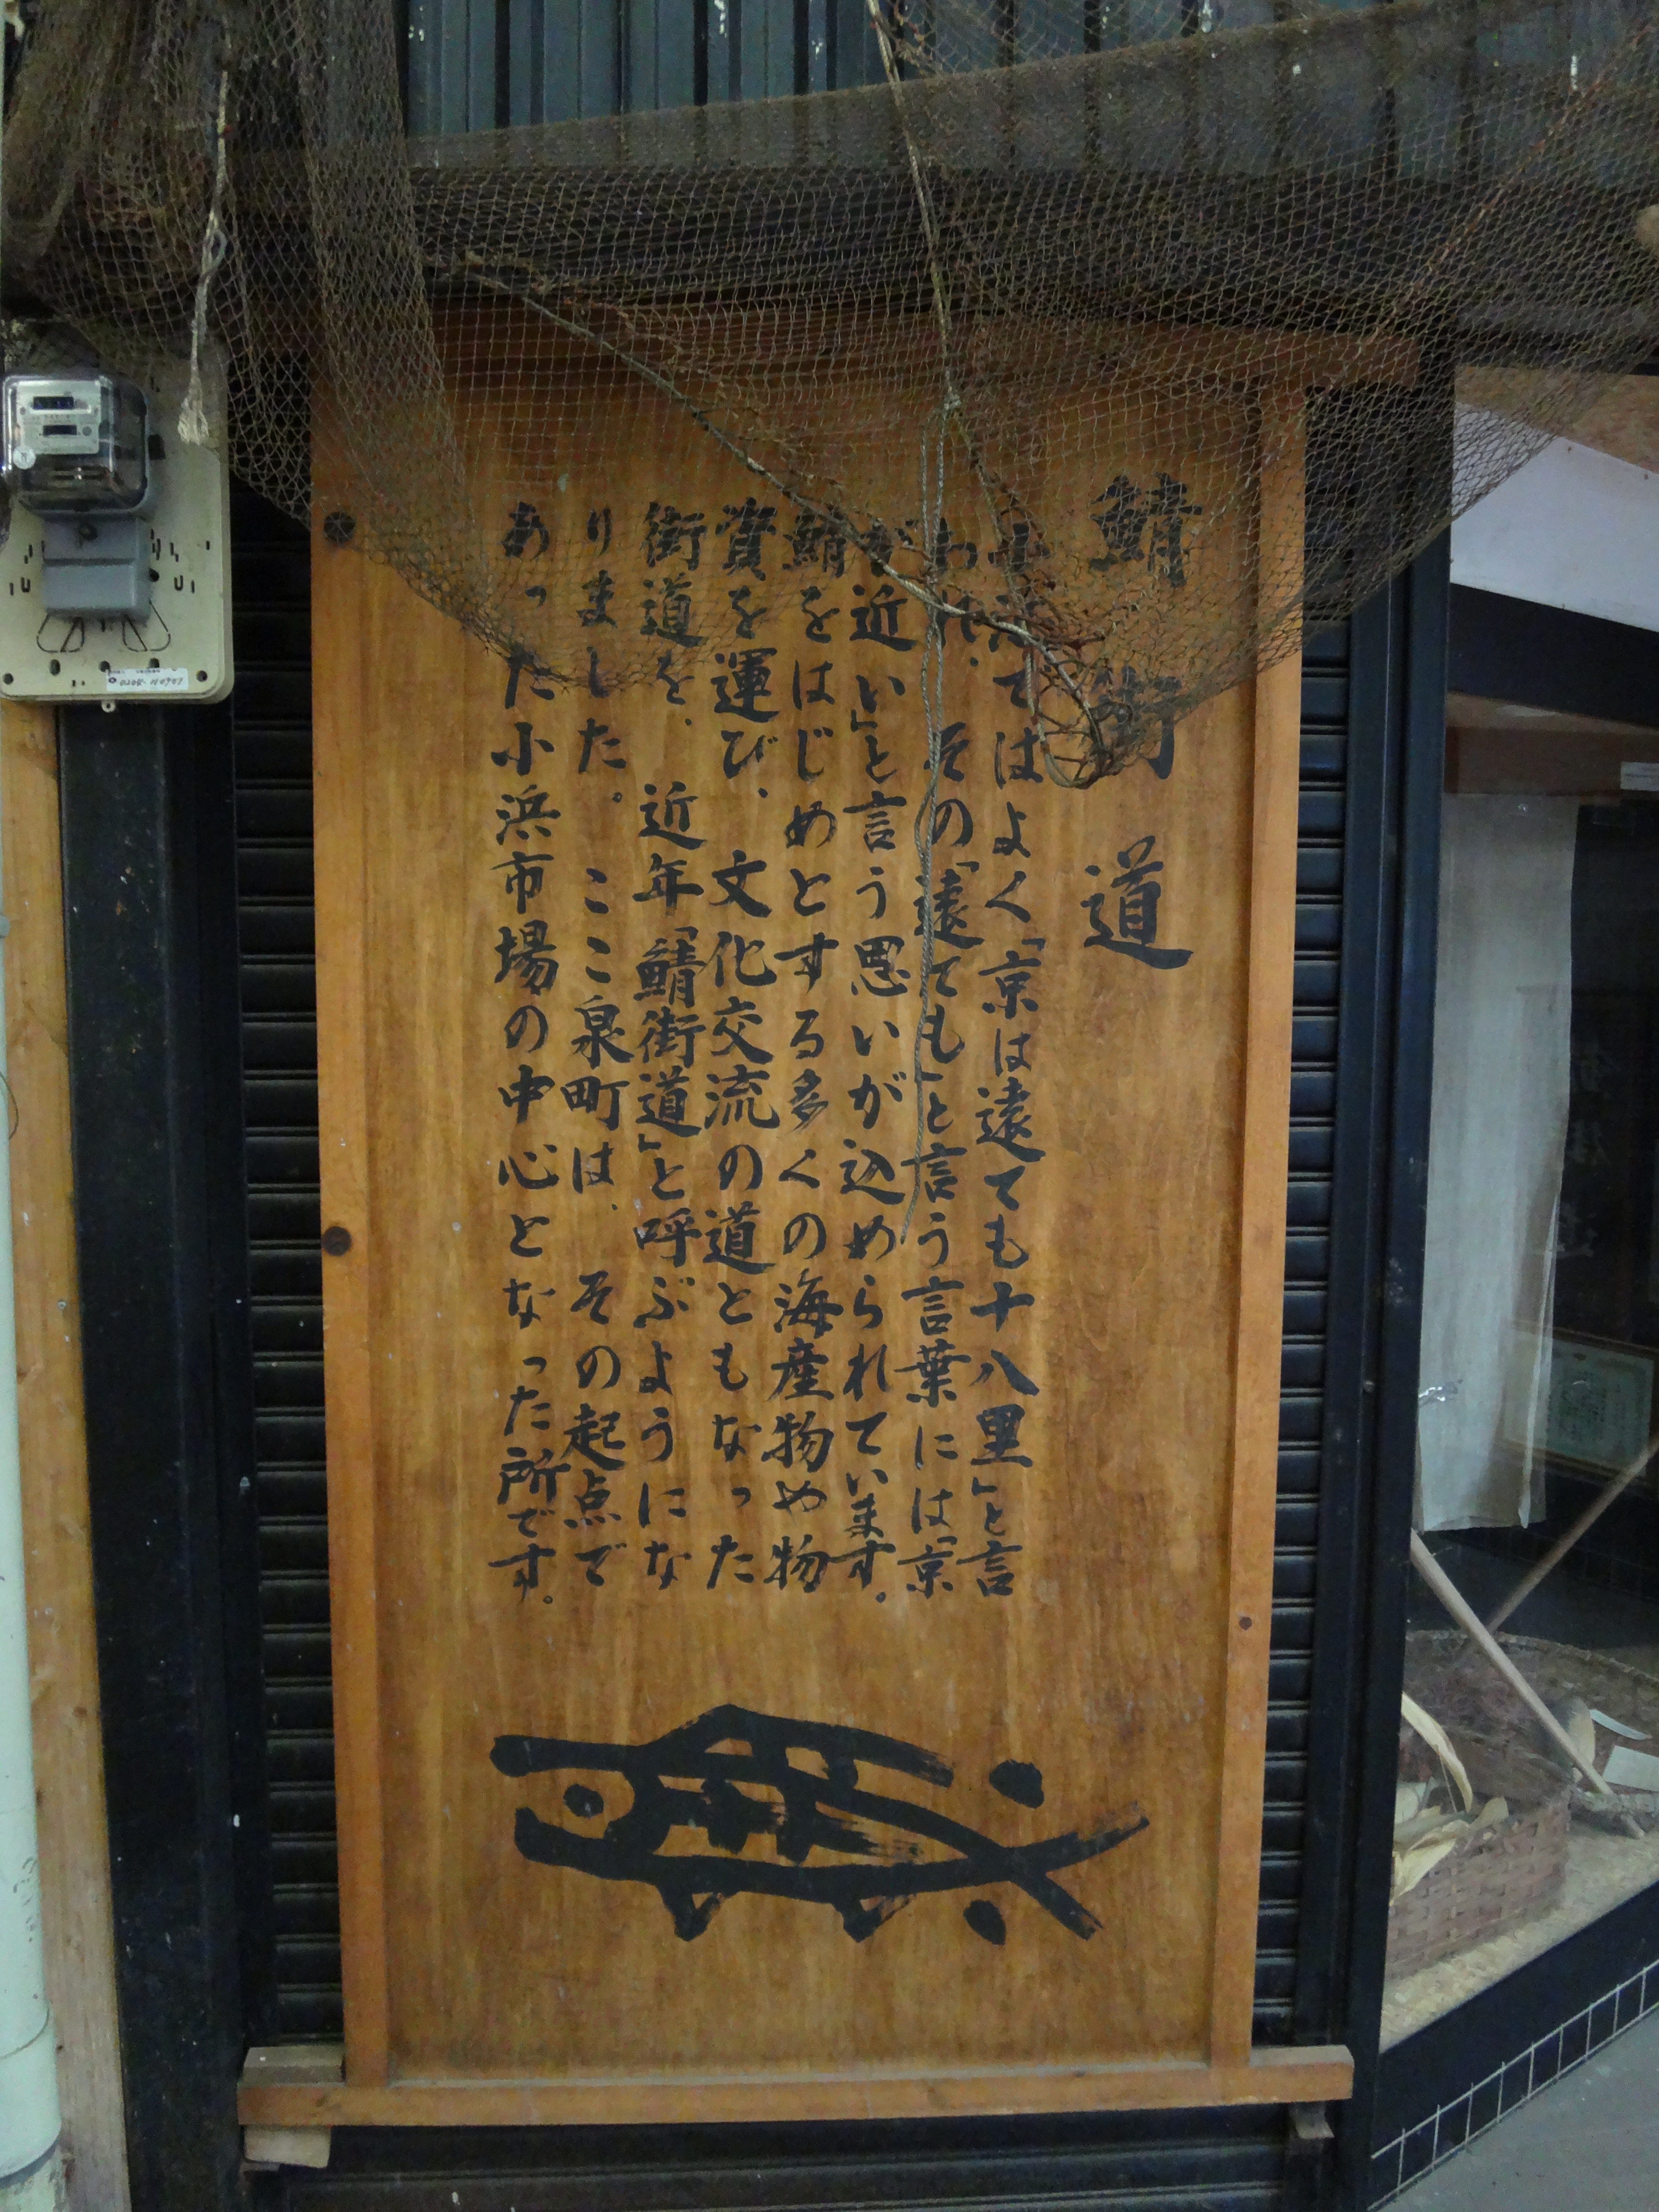 鯖街道
小浜ではよく「京は遠ても十八里」と言
われ、その「遠ても」と言う言葉には「京
が近い」と言う思いが込められています。
鯖をはじめとする多くの海産物や物
資を運び、文化交流の道ともなった
街道を、近年「鯖街道」と呼ぶようにな
りました。ここ泉町は、その起点で
あった小浜市場の中心となった所です。